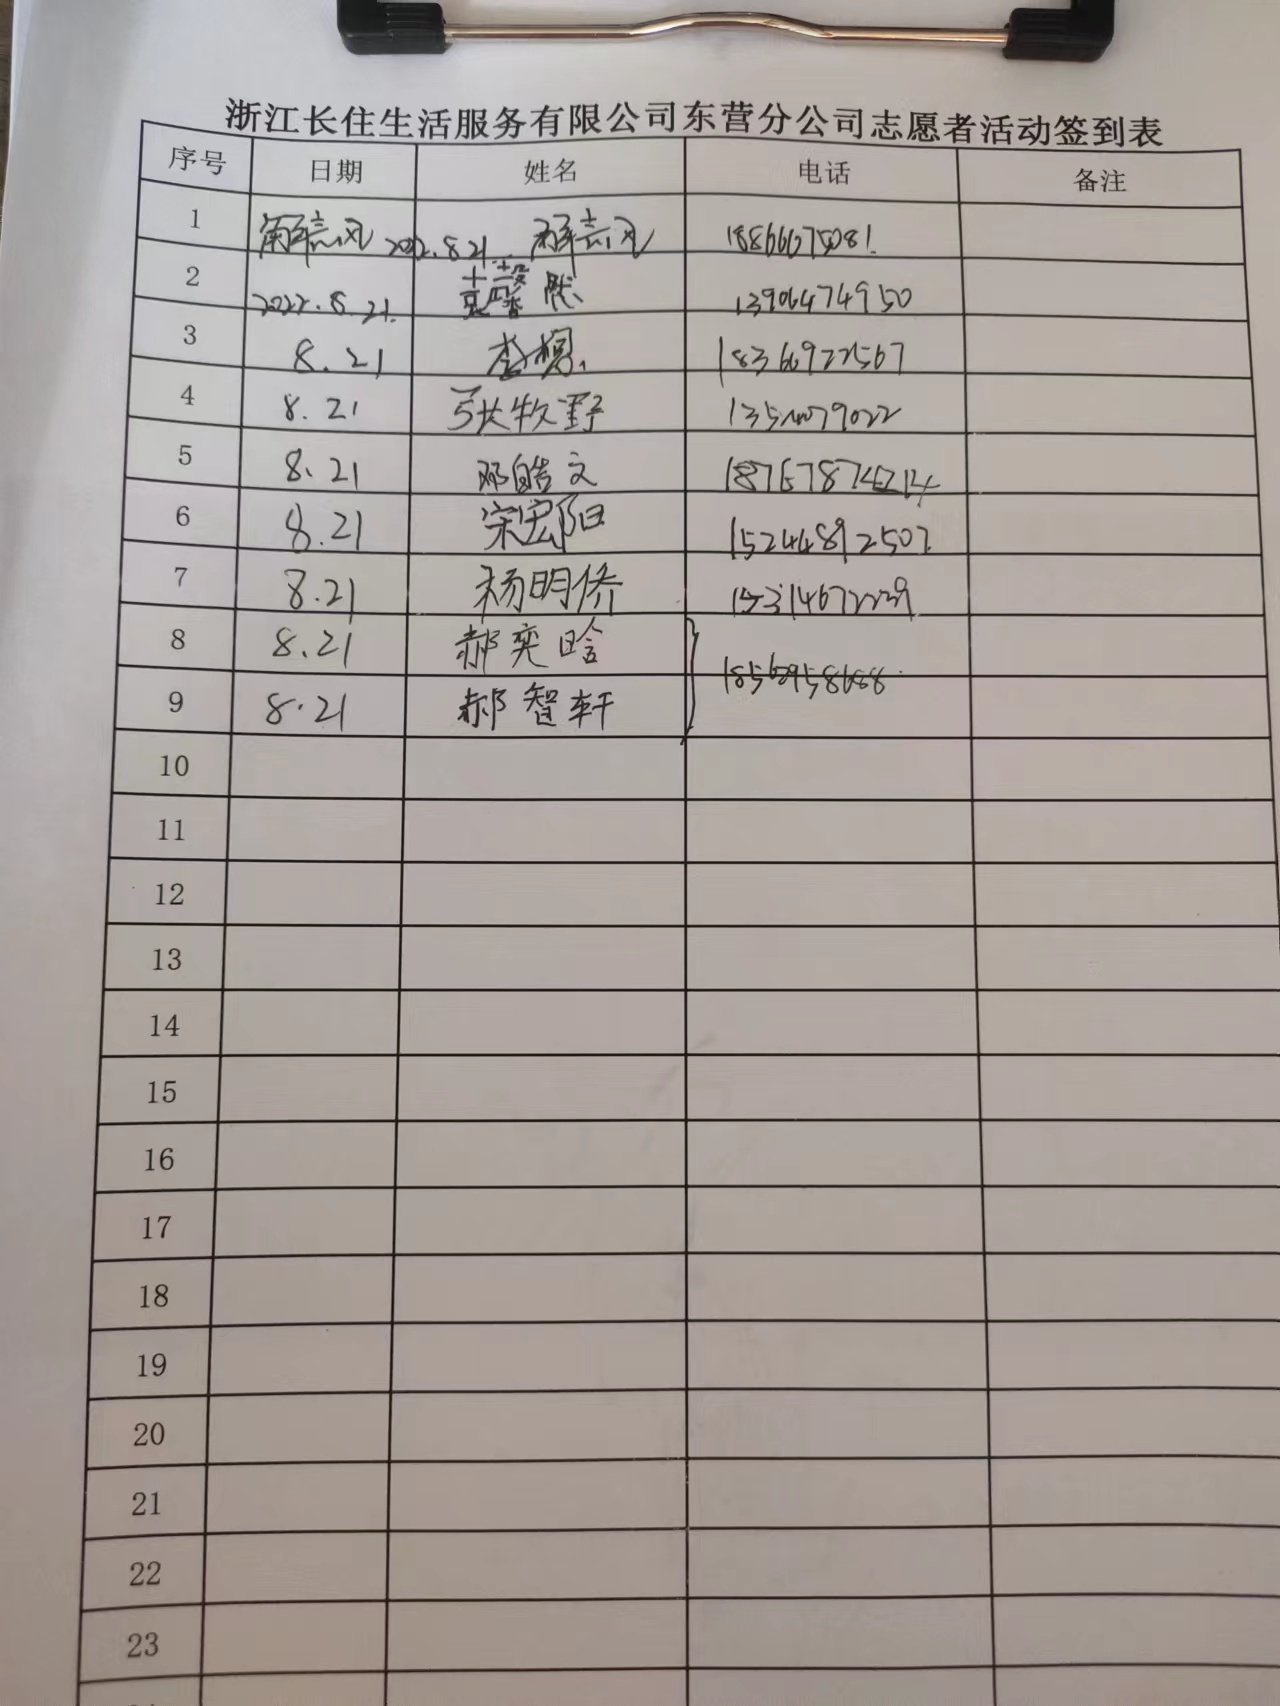 浙江长住生活服务有限公司东营分公司志愿者活动签到表
序号 日期 姓名 电话 备注
1 2022.8.21 18866675081
2 2022.8.21. 13906474950
3 8.21 李 18366922567
4 8.21 张牧野
5 8.21 邓皓文
6 8.21 宋宏阳 15244892507
7 8.21 杨明侨 15314672229
8 8.21 郝奕晗
9 8.21 郝智轩
10
11
12
13
14
15
16
17
18
19
20
21
22
23